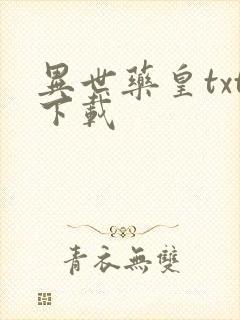 異世藥皇txt
下載
青衣無雙